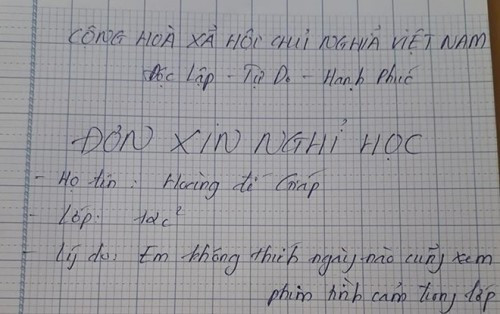 CÔNG HOÀ XÃ HÔI CHỦ NGHĨA VIỆT NAM
Độc Lập - Tự Do - Hạnh Phúc
ĐƠN XIN NGHỈ HỌC
- Họ tên : Hoàng tế Giáp
- Lớp: 12c²
- Lý do: Em không thích ngày nào cũng xem
phim tình cảm trong lớp